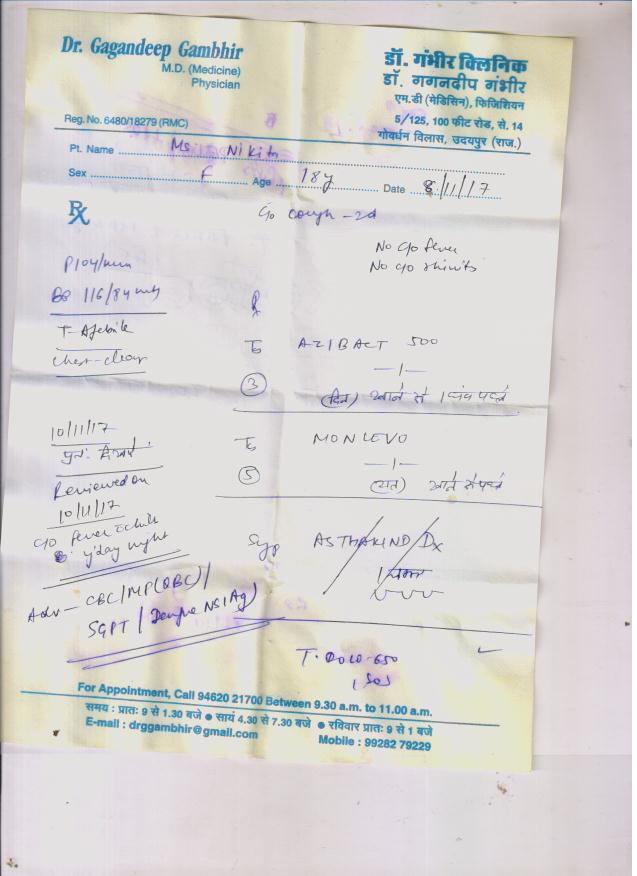 Dr. Gagandeep Gambhir
M.D. (Medicine)
Physician
Reg. No. 6480/18279 (RMC)
डॉ. गंभीर क्लिनिक
डॉ. गगनदीप गंभीर
एम.डी (मेडिसिन), फिजिशियन
5/125, 100 फीट रोड, से. 14
गोवर्धन विलास, उदयपुर (राज.)
Pt. Name Ms Nikita
Sex F Age 18y Date 8/11/17
Rx
C/o cough - 2d
No c/o fever
No c/o
P 104/min
BP 116/84
T - Afebrile
Chest - clear
T AZIBACT 500
—1—
3
(दिन) खाने से 1 घंटे पहले
10/11/17
पुनः दिखाएं
T MONLEVO
—1—
5
(रात) खाने से पहले
Reviewed on
10/11/17
c/o fever c chills
y'day night
Syp ASTHAKIND Dx
1 चम्मच
Adv — CBC/MP(QBC)/
SGPT/Dengue NS1Ag)
T. DOLO-650
1 SOS
For Appointment, Call 94620 21700 Between 9.30 a.m. to 11.00 a.m.
समय : प्रातः 9 से 1.30 बजे ● सायं 4.30 से 7.30 बजे ● रविवार प्रातः 9 से 1 बजे
E-mail : drggambhir@gmail.com
Mobile : 99282 79229